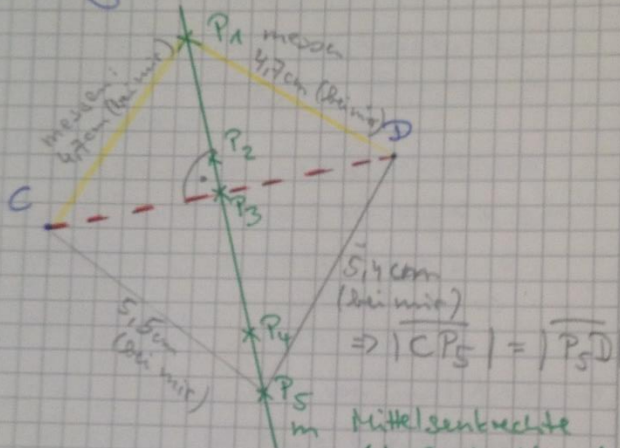 P1
messen
4,7cm (bei mir)
messen:
4,7cm (bei mir)
D
P2
C
P3
5,4cm
(bei mir)
5,5cm
(bei mir)
P4
=> |CP5| = |P5D
P5
m Mittelsenkrechte